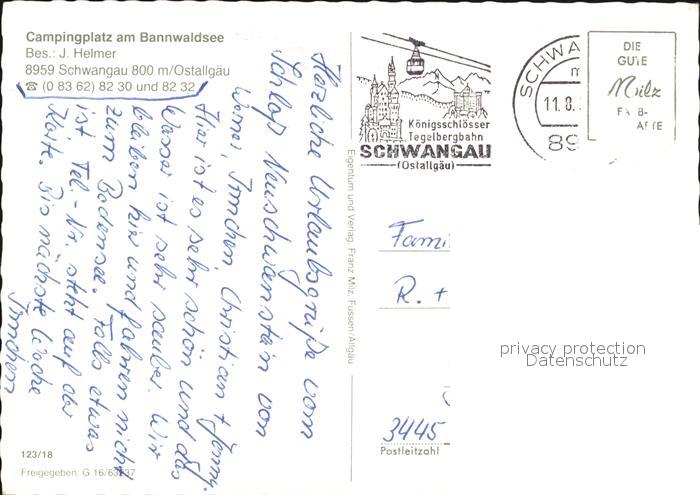 Campingplatz am Bannwaldsee
Bes.: J. Helmer
8959 Schwangau 800 m/Ostallgäu
☎ (0 83 62) 82 30 und 82 32
Herzliche Urlaubsgrüße vom
Schloß Neuschwanstein von
Werner, Irmchen, Christian + Jenny.
Hier ist es sehr schön und das
Wasser ist sehr sauber. Wir
bleiben hier und fahren nicht
zum Bodensee. Falls etwas
ist Tel.-Nr. steht auf der
Karte. Bis nächste Woche
Irmchen
123/18
Freigegeben: G 16/63
Eigentum und Verlag Franz Milz, Füssen/Allgäu
Königsschlösser
Tegelbergbahn
SCHWANGAU
(Ostallgäu)
SCHWA
11.8.
89
DIE
GUTE
Milz
Fami
R. +
3445
Postleitzahl
privacy protection
Datenschutz